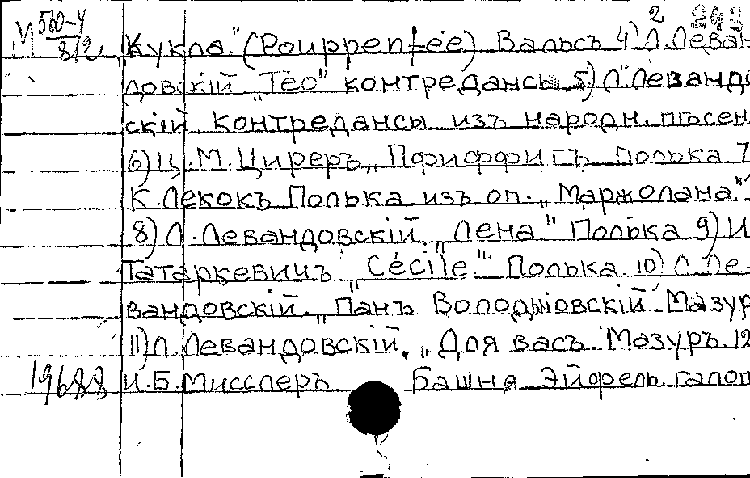 М 560-4 / 812
2
Кукла" (Pourpentée) Вальсъ 4) Л. Леван
довскій „Тео" контредансы 5) Л. Левандо
скій Контредансы изъ народн. пѣсен
6) Ц. М. Циреръ „Пфиффигъ Полька 7
К Лекокъ Полька изъ оп. „Маржолана"
8) Л. Левандовскій. „Лена" Полька 9) И
Татаркевичъ „Cécile" Полька 10) Л Ле-
вандовскій. „Панъ Володыіовскій" Мазур
11) Л. Левандовскій. „Для васъ Мазуръ. 12
19688 И. Б. Мисслеръ Башня Эйфель галоп